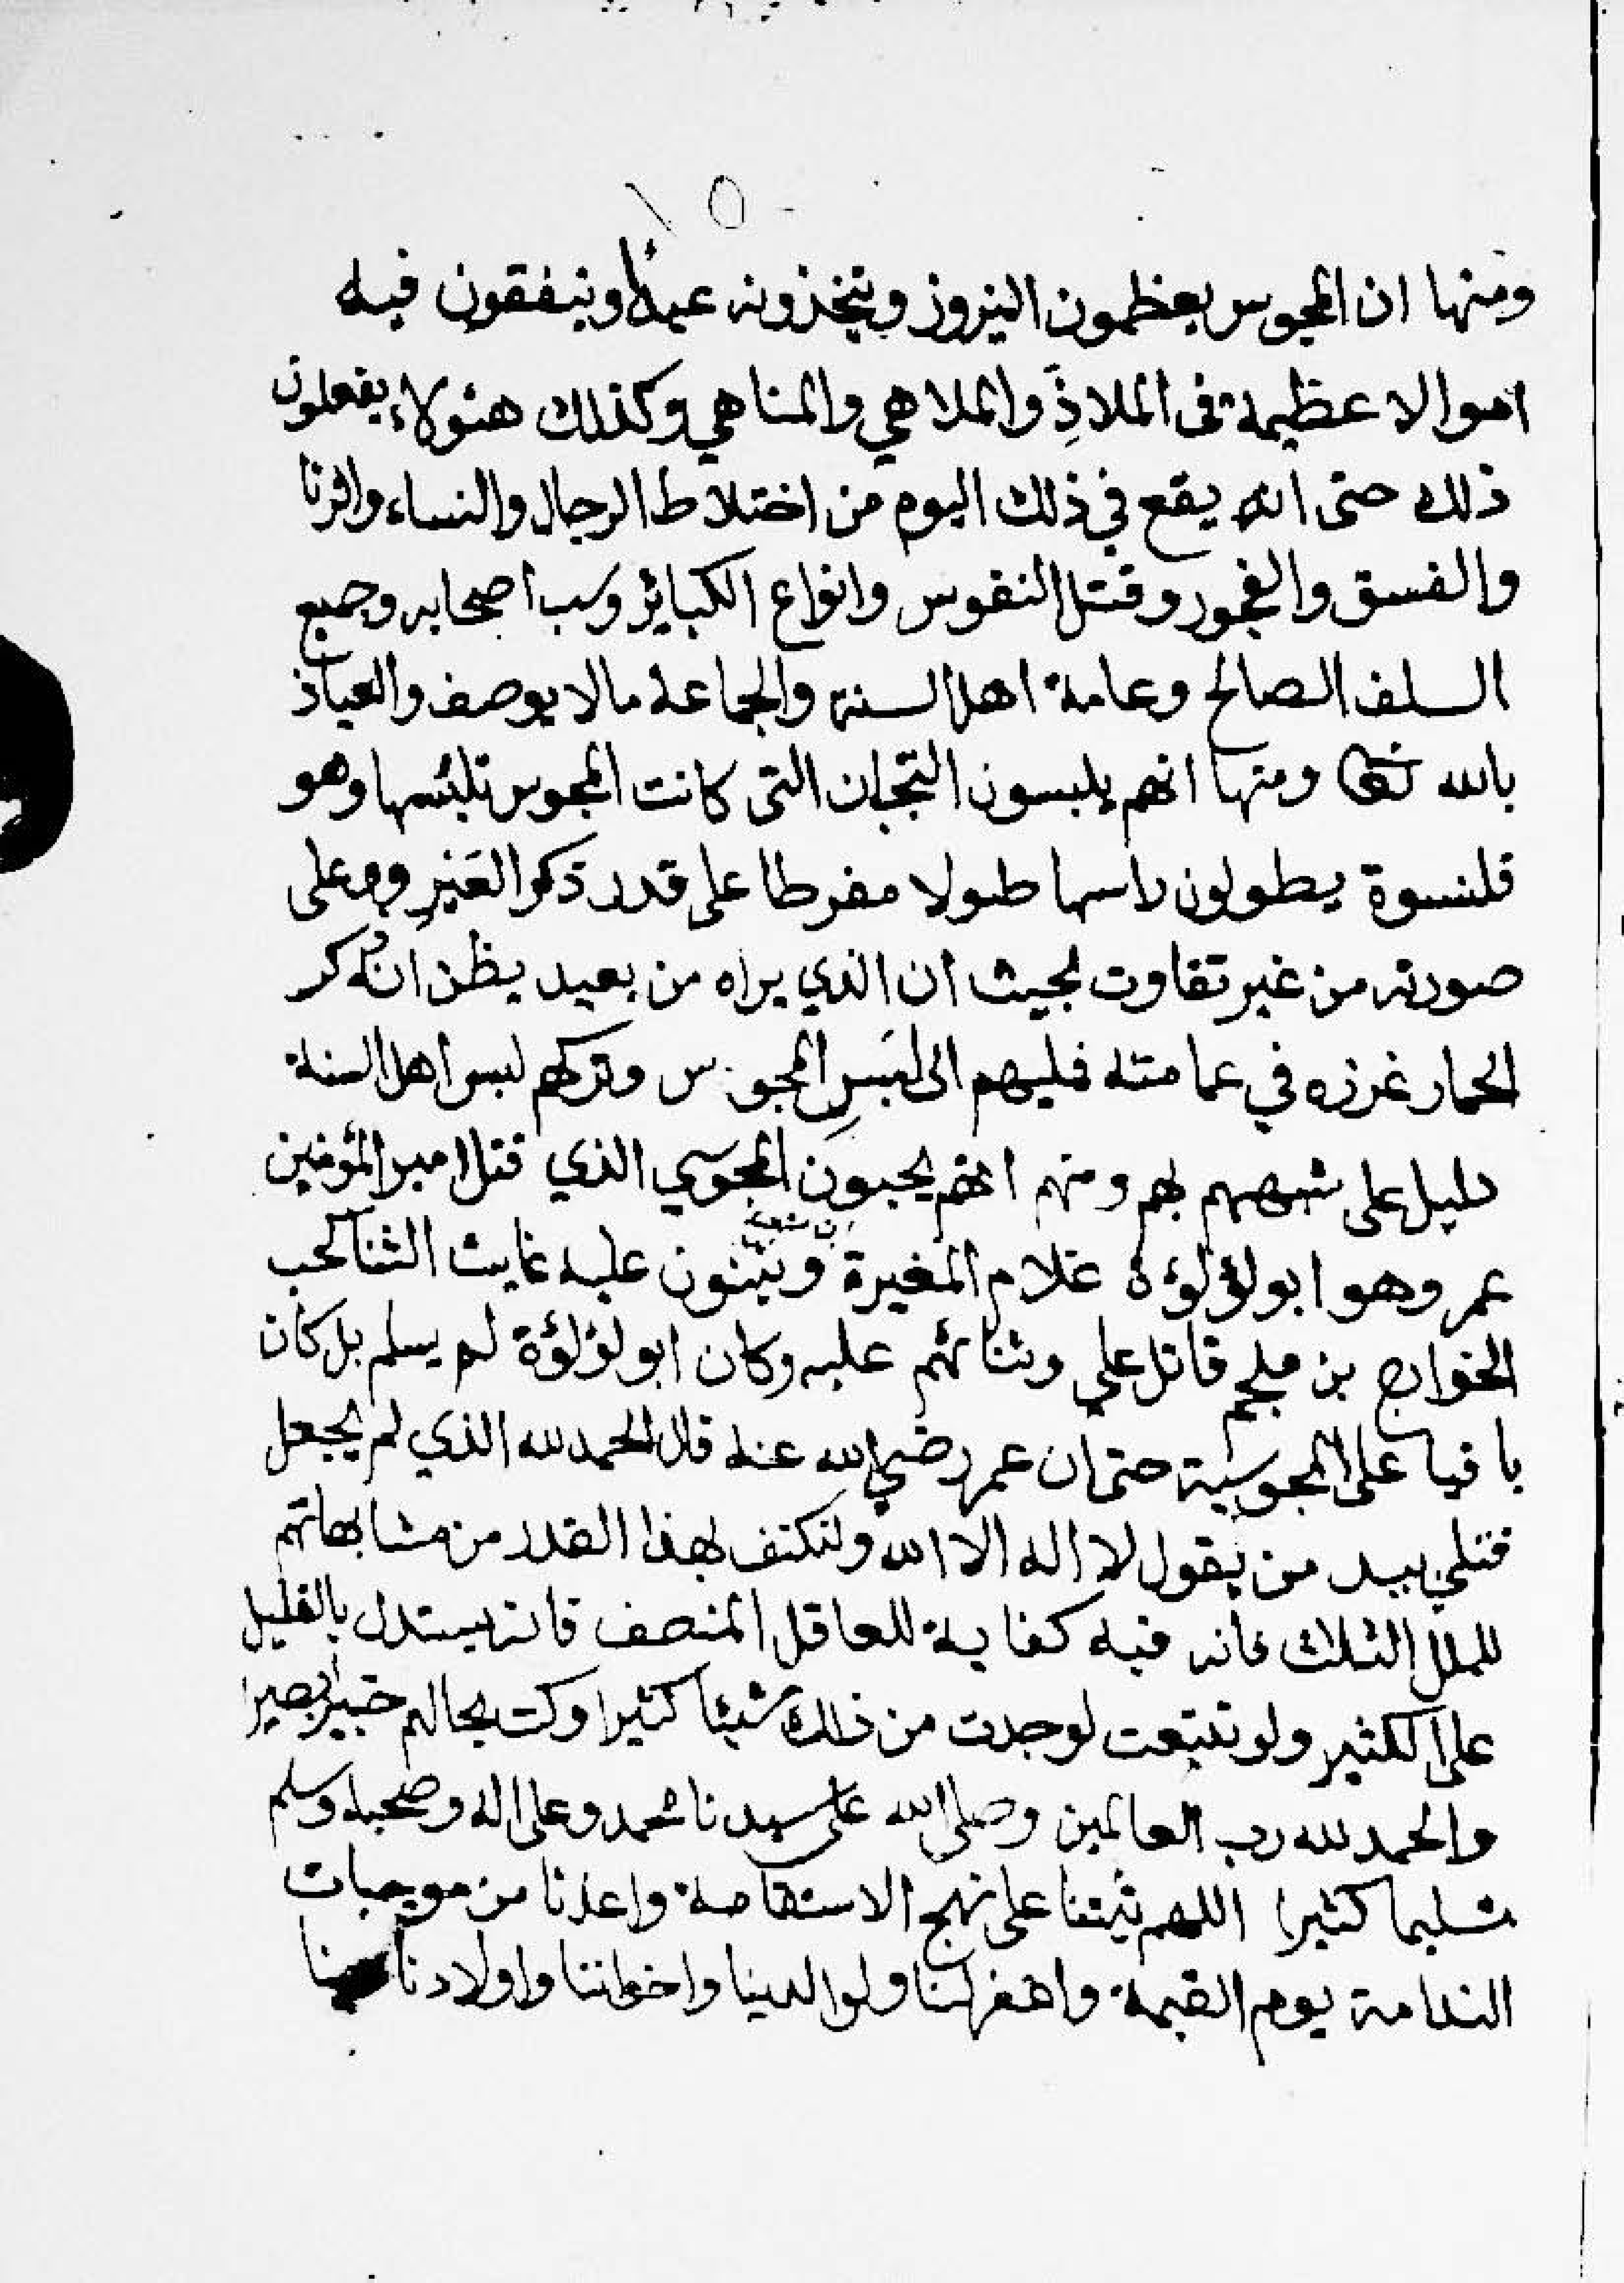 ١٥
ومنها ان المجوس يعظمون النيروز ويتخذونه عيدا وينفقون فيه
اموالا عظيمة فى الملاذِّ والملاهي والمناهي وكذلك هئولاء يفعلون
ذلك حتى انه يقع في ذلك اليوم من اختلاط الرجال والنساء والزنا
والفسق والفجور وقتل النفوس وانواع الكبائر وسب اصحابه وجميع
السلف الصالح وعامة اهل السنة والجماعة مالا يوصف والعياذ
بالله تعالى ومنها انهم يلبسون التيجان التى كانت المجوس تلبسها وهو
قلنسوة يطولون راسها طولا مفرطا على قدر ذكر العَيْرِ وعلى
صورته من غير تفاوت بحيث ان الذي يراه من بعيد يظن انه ذكر
الحمار غرزه في عمامته فميلهم الى لبَسِ المجوس وتركهم لبس اهل السنة
دليل على شبههم بهم ومنهم انهم يحبون المجوسي الذي قتل امير المؤمنين
عمر وهو ابو لؤلؤة غلام المغيرة بن شعبة ويثنون عليه غايت الثنا كحب
الخوارج بن ملجم قاتل علي وثنائهم عليه وكان ابو لؤلؤة لم يسلم بل كان
باقيا على المجوسية حتى ان عمر رضي الله عنه قال الحمد لله الذي لم يجعل
قتلي بيد من يقول لا اله الا الله ولنكتف بهذا القدر من مشابهاتهم
للملل الثلاث فانه فيه كفاية للعاقل المنصف فانه يستدل بالقليل
على الكثير ولو تتبعت لوجدت من ذلك شيئا كثيرا وكنت بحالهم خبيرا بصيرا
والحمد لله رب العالمين وصلى الله على سيدنا محمد وعلى اله وصحبه وسلم
تسليما كثيرا اللهم ثبتنا على نهج الاستقامة واعذنا من موجبات
الندامة يوم القيمة واغفر لنا ولوالدينا واخواننا واولادنا